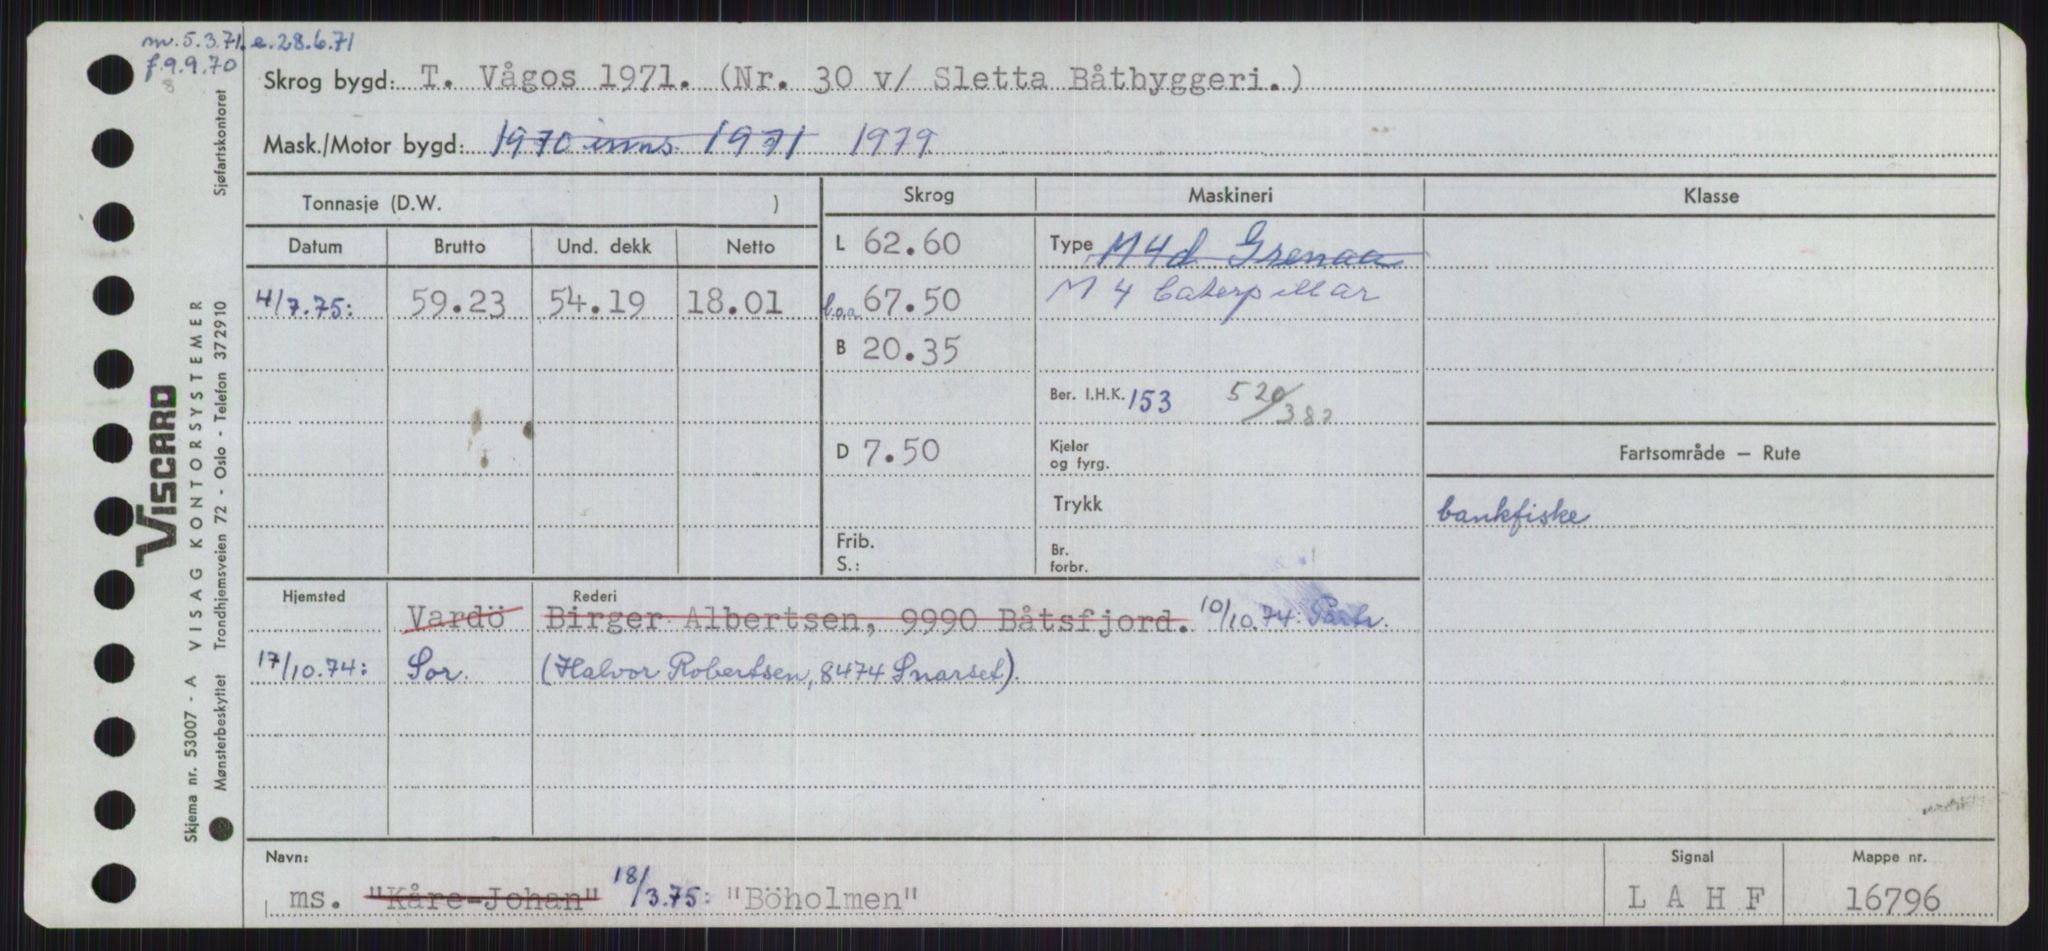 m. 5.3.71. e. 28.6.71
f. 9.9.70
8
Skrog bygd: T. Vågos 1971. (Nr. 30 v/ Sletta Båtbyggeri.)
Mask./Motor bygd: 1970 inns. 1971 1979
Tonnasje (D.W. )
Skrog Maskineri Klasse
Datum Brutto Und. dekk Netto
L 62.60 Type M4d Grenaa
4/7.75: 59.23 54.19 18.01 l.o.a 67.50 M 4 Caterpillar
B 20.35
Ber. I.H.K. 153 520/382
D 7.50 Kjeler og fyrg.
Fartsområde — Rute
Trykk
bankfiske
Frib.
S.:
Br. forbr.
Hjemsted Rederi
Vardö Birger Albertsen, 9990 Båtsfjord. 10/10.74: Partr.
17/10.74: Sor. (Halvor Robertsen, 8474 Snarset).
Navn: Signal Mappe nr.
ms. "Kåre-Johan" 18/3.75: "Böholmen" L A H F 16796
Sjøfartskontoret
VISCARD
Skjema nr. 53007 - A VISAG KONTORSYSTEMER
Mønsterbeskyttet Trondhjemsveien 72 - Oslo - Telefon 372910